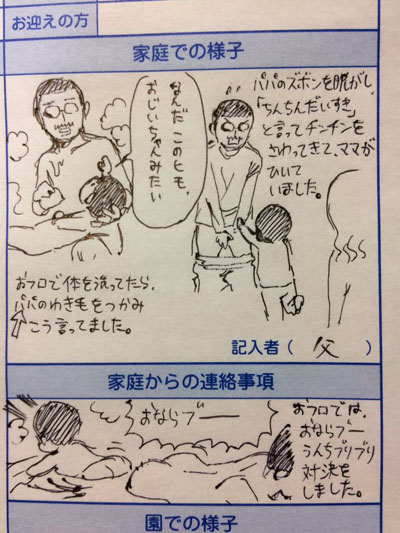 お迎えの方
家庭での様子
パパのズボンを脱がし、
「ちんちんだいすき」
と言ってチンチンを
さわってきて、ママが
ひいて
いました。
なんだ このヒモ、
おじいちゃんみたい
おフロで体を洗ってたら、
パパのわき毛をつかみ
こう言ってました。
記入者（ 父 ）
家庭からの連絡事項
おならブー
おフロでは、
おならブー
うんちブリブリ
対決を
しました。
園での様子